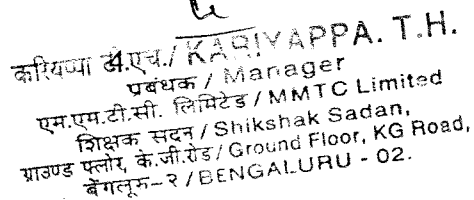 करियप्पा टी.एच. / KARIYAPPA. T.H.
प्रबंधक / Manager
एम.एम.टी.सी. लिमिटेड / MMTC Limited
शिक्षक सदन / Shikshak Sadan,
ग्राउण्ड फ्लोर, के.जी.रोड / Ground Floor, KG Road,
बेंगलूरु-२ / BENGALURU - 02.